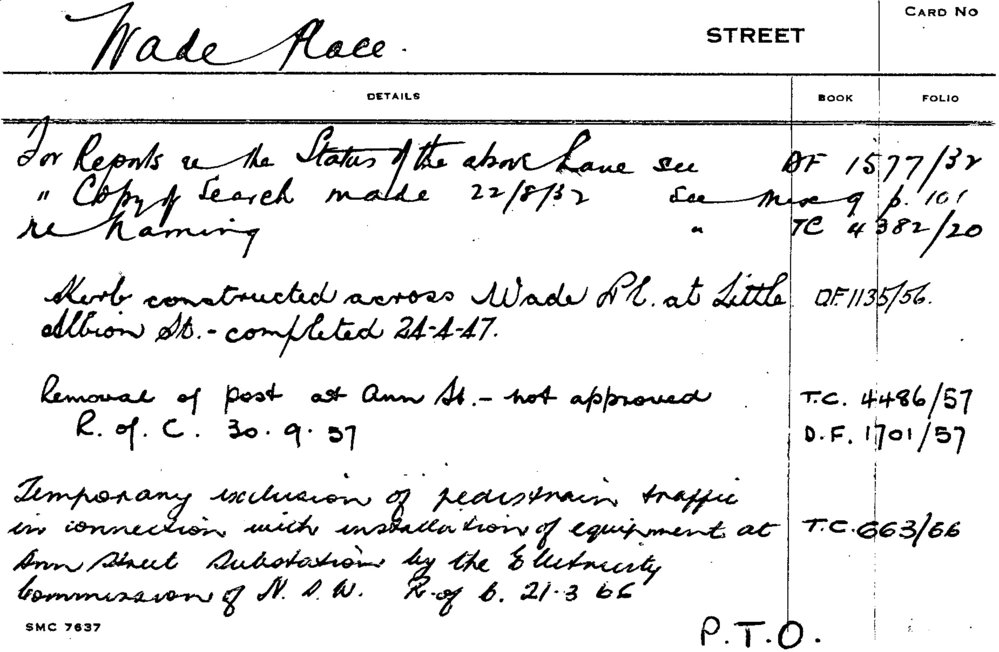 Wade Place. STREET CARD NO
DETAILS BOOK FOLIO
For Reports re the Status of the above Lane see DF 1577/32
" Copy of Search made 22/8/32 See Misc 9 p. 101
re Naming " TC 4382/20
Kerb constructed across Wade Pl. at Little D.F. 1135/56.
Albion St. - completed 24-4-47.
Removal of post at Ann St. - not approved T.C. 4486/57
R. of C. 30.9.57 D.F. 1701/57
Temporary exclusion of pedistrain traffic
in connection with installation of equipment at T.C. 663/66
Ann Street Substation by the Electricity
Commission of N.S.W. R. of C. 21.3 66
SMC 7637 P.T.O.